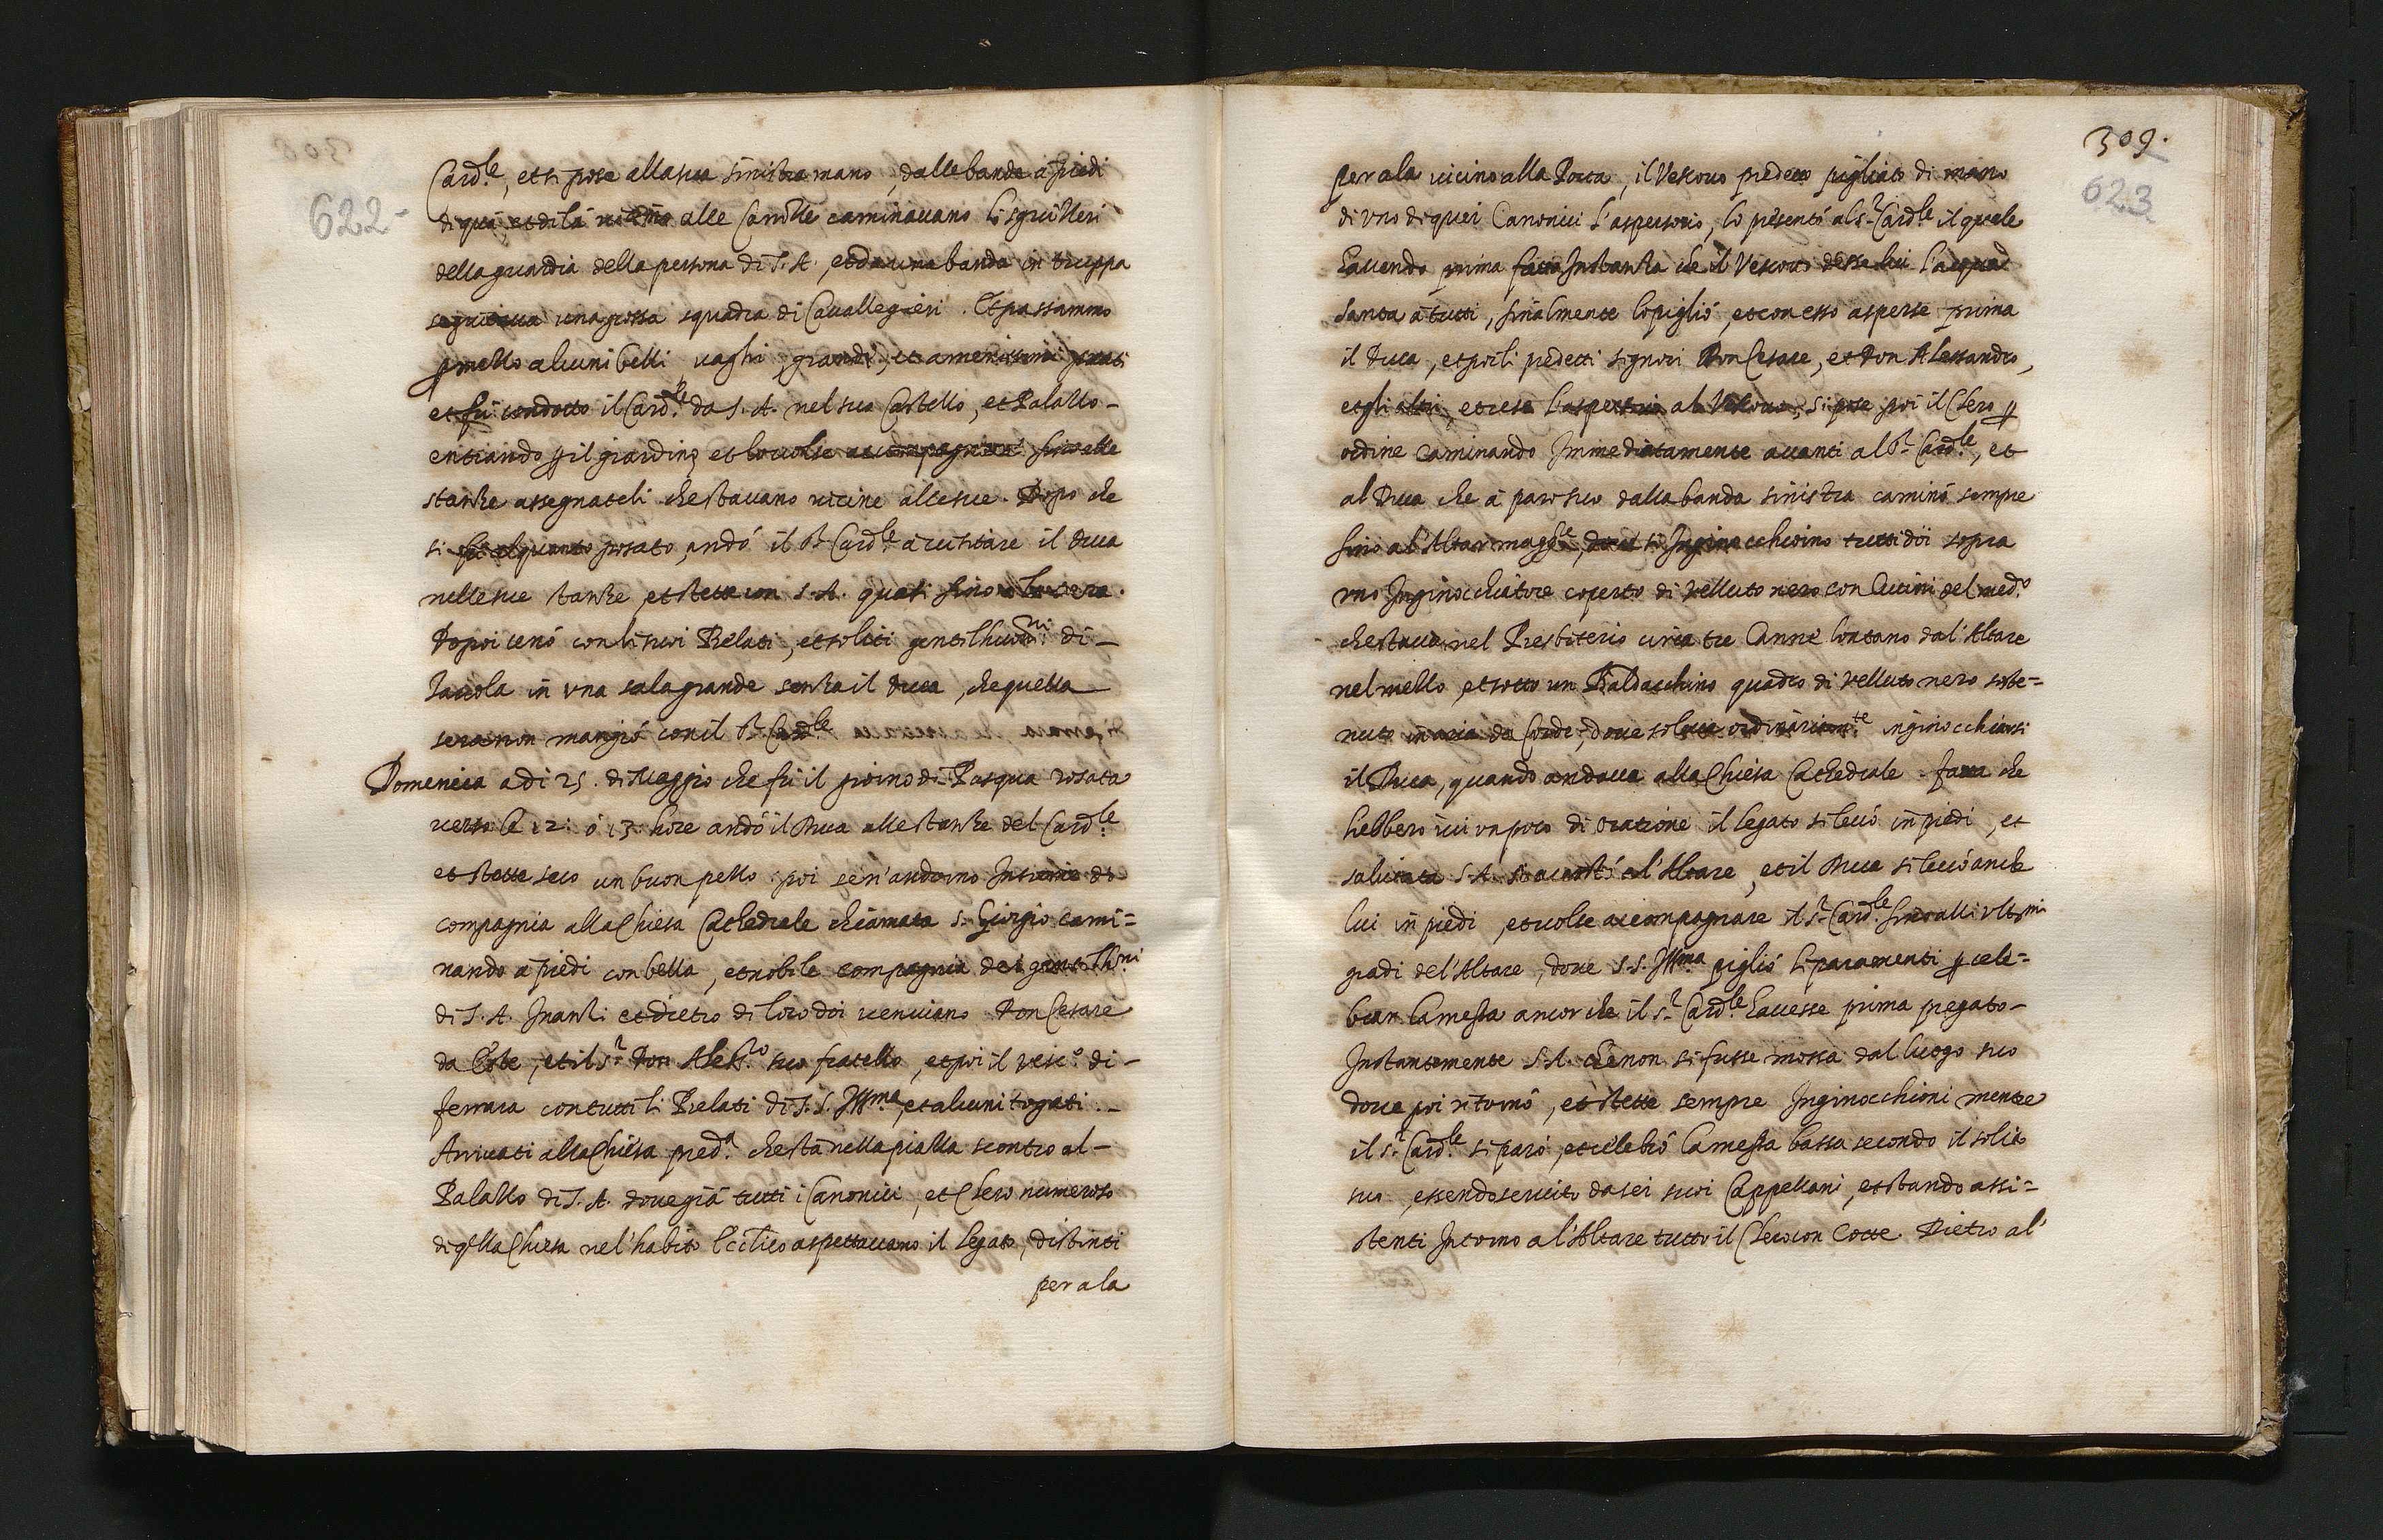 622-
Card.le, et si pose alla sua sinistra mano, dalle bande à piedi
di quà, et di là vicino alle Carrozze caminavano li sguizzeri
della guardia della persona di S. A., et da una banda in truppa
seguitava una grossa squadra di Cavalleggieri. Et passammo
p mezzo alcuni belli, vaghi, grandi, et amenissimi prati
et fù condotto il Card.le da S. A. nel suo Castello, et Palazzo-
entrando p il giardino, et lo volse accompagnar sino alle
stanze assegnateli che stavano vicine alle sue. Dopo che
si fù alquanto posato, andò il S.r Card.le à visitare il Duca
nelle sue stanze, et stette con S. A. quasi sino à sera.
Dopoi cenò con li suoi Prelati, et soliti gentilhuom.ni di-
Tavola in una sala grande senza il Duca, che quella
sera non mangiò con il S.r Card.le
Domenica adi 25. di Maggio che fù il giorno di Pasqua rosata
verso le 12. ò 13. hore andò il Duca alle stanze del Card.le
et stette seco un buon pezzo, poi se n'andorno Insieme di
compagnia alla Chiesa Cathedrale chiamata S. Giorgio cami=
nando à piedi con bella, et nobile compagnia de i gentilh.ni
di S. A. Inanzi et dietro di loro doi venivano Don Cesare
da Este, et il S.r Don Aless.ro suo fratello, et poi il Vesc.o di-
ferrara con tutti li Prelati di S. S. Ill.ma, et alcuni togati.-
Arrivati alla Chiesa pred.a che stà nella piazza scontro al-
Palazzo di S. A. dove già tutti i Canonici, et Clero numeroso
di qlla Chiesa nel'habito Ecclico aspettavano il Legato, distinti
per ala
309.
623
per ala vicino alla Porta, il Vescovo predetto pigliato di mano
di uno di quei Canonici l'aspersorio, lo presentò al S.r Card.le il quale
havendo prima fatta Instanza che il Vescovo desse lui l'acqua
santa à tutti, finalmente lo pigliò, et con esso asperse prima
il Duca, et poi li predetti signori Don Cesare, et Don Alessandro,
et gli altri, et resa l'aspersorio al Vescovo, si pose poi il Clero p
ordine caminando Immediatamente avanti al S.r Card.le, et
al Duca che à paro suo dalla banda sinistra caminò sempre
sino al'Altar magg.re, dove si Inginocchiorno tutti doi sopra
uno Inginocchiatore coperto di velluto nero con Cuscini del med.o
che stava nel Presbiterio circa tre Canne lontano dal'Altare
nel mezzo, et sotto un Baldacchino quadro di velluto nero soste=
nuto in aria da Corde, dove soleva ordinariam.te inginocchiarsi
il Duca, quando andava alla Chiesa Cathedrale. fatta che
hebbero ivi un poco di oratione il Legato si levò in piedi, et
salutata S. A. s'accostò al'Altare, et il Duca si levò anche
lui in piedi, et volse accompagnare il S.r Card.le sino alli ult.mi
gradi del'Altare, dove S. S. Ill.ma pigliò li paramenti p cele=
brar la messa ancor che il S.r Card.le havesse prima pregato-
Instantemente S. A. che non si fusse mossa dal luogo suo
dove poi ritornò, et stette sempre Inginocchioni mentre
il S.r Card.le si parò, et celebrò la messa bassa secondo il solito
suo, essendo servito da sei suoi Cappellani, et stando assi=
stenti Intorno al'Altare tutto il Clero con Cotte. Dietro al'